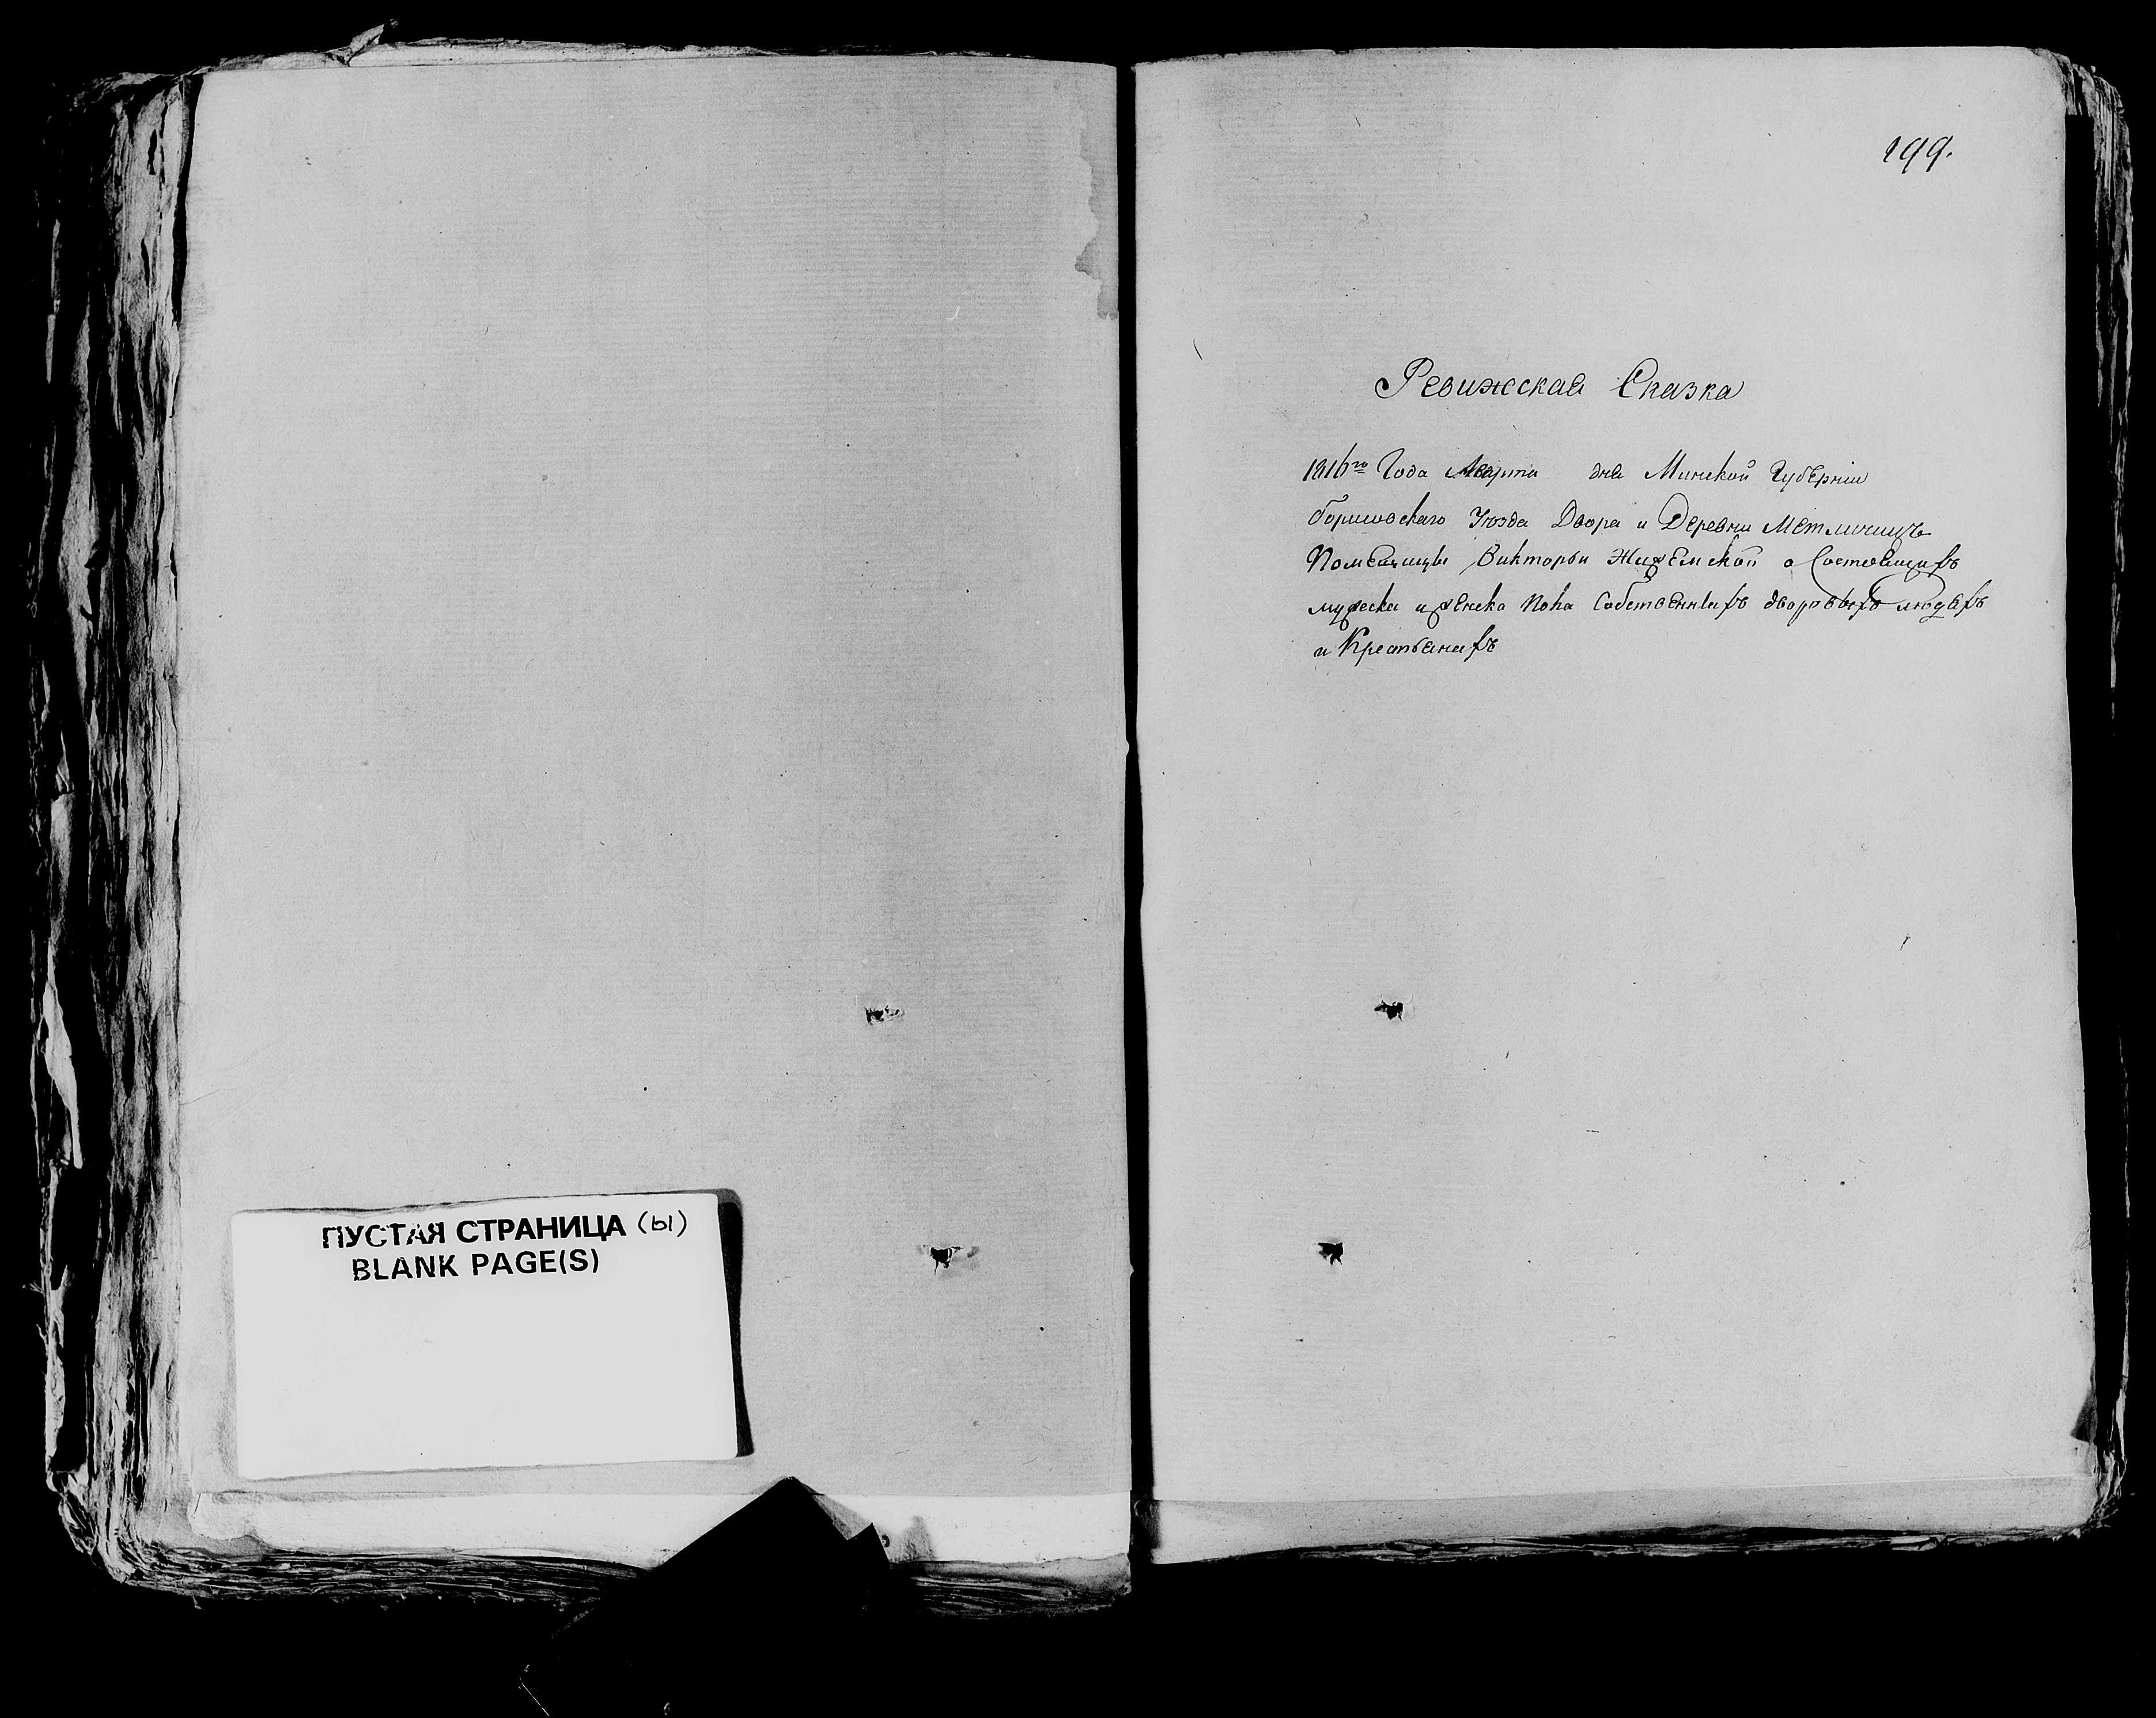 ПУСТАЯ СТРАНИЦА (ы)
BLANK PAGE(S)
199.
Ревижская Сказка
1816го Года Марта дня Минской Губерніи
борисовскаго Уюзда Двора и Деревни Метличицъ
Помещицы Викторыи Жижемской о Состоящихъ
мужеска и женска пола Собственныхъ дворовыхъ людяхъ
и Крестьянахъ